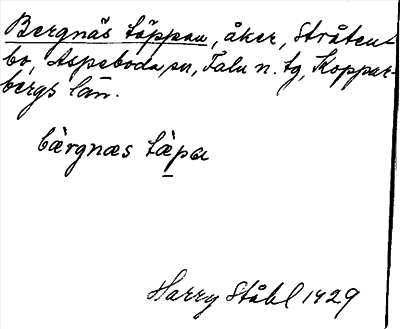 Bergnäs täppan, åker, Stråten-
bo, Aspeboda sn, Falu n. tg, Koppar-
bergs län.
bærgnæs tæ̀pa
Harry Ståhl 1929